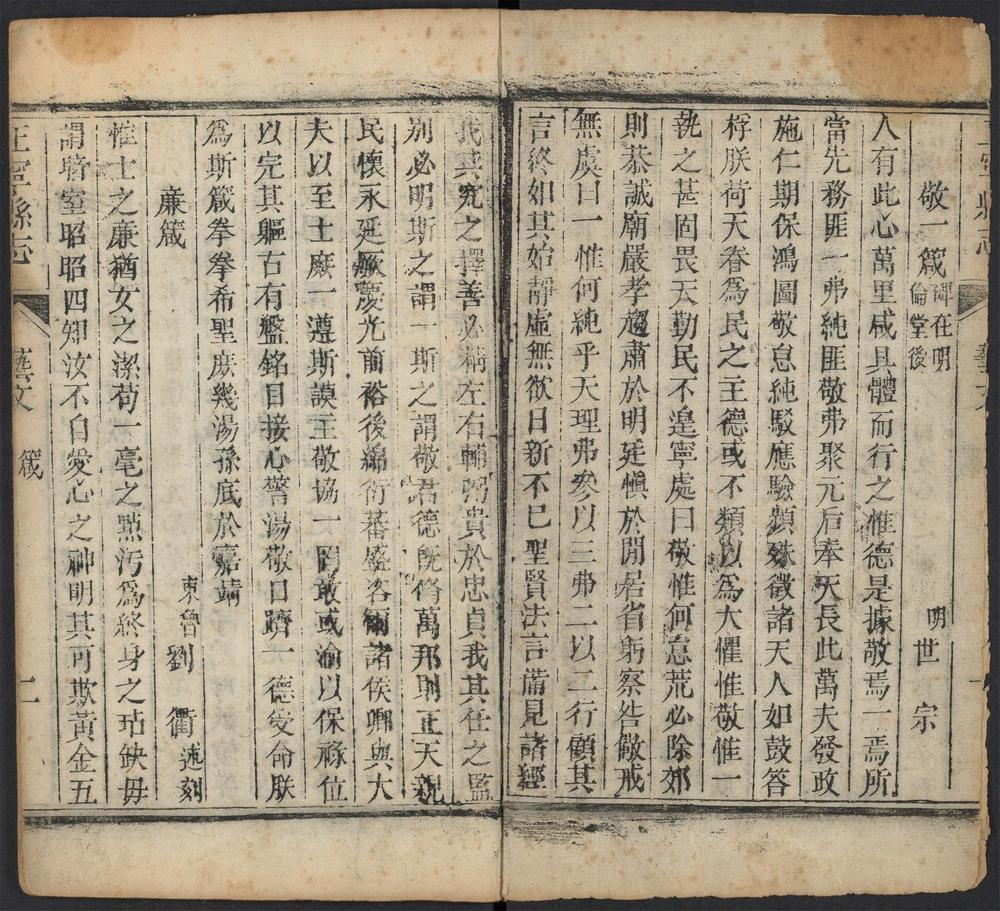 敬一箴碑在明倫堂後
明世宗
人有此心萬里咸具體而行之惟德是據敬焉一焉所
當先務匪一弗純匪敬弗聚元后奉天長此萬夫發政
施仁期保鴻圖敬怠純駁應驗頻殊徵諸天人如鼓答
桴朕荷天眷為民之主德或不類以為大懼惟敬惟一
執之甚固畏天勤民不遑寧處曰敬惟何怠荒必除郊
則恭誠廟嚴孝趨肅於明廷慎於閒居省躬察咎儆戒
無虞曰一惟何純乎天理弗參以三弗二以二行顧其
言終如其始靜虛無欲日新不已聖賢法言備見諸經
我其究之擇善必精左右輔弼貴於忠貞我其任之監
別必明斯之謂一斯之謂敬君德既脩萬邦則正天親
民懷永延厥慶光前裕後綿衍蕃盛咨爾諸侯卿與大
夫以至士庶一遵斯謨主敬協一罔敢或渝以保祿位
以完其軀古有盤銘目接心警湯敬日躋一德受命朕
為斯箴拳拳希聖庶幾湯孫底於嘉靖
廉箴
東魯劉　衢述刻
惟士之廉猶女之潔苟一毫之點汚爲終身之玷缺毋
謂暗室昭昭四知汝不自愛心之神明其可欺黃金五
正寧縣志
藝文　箴
二